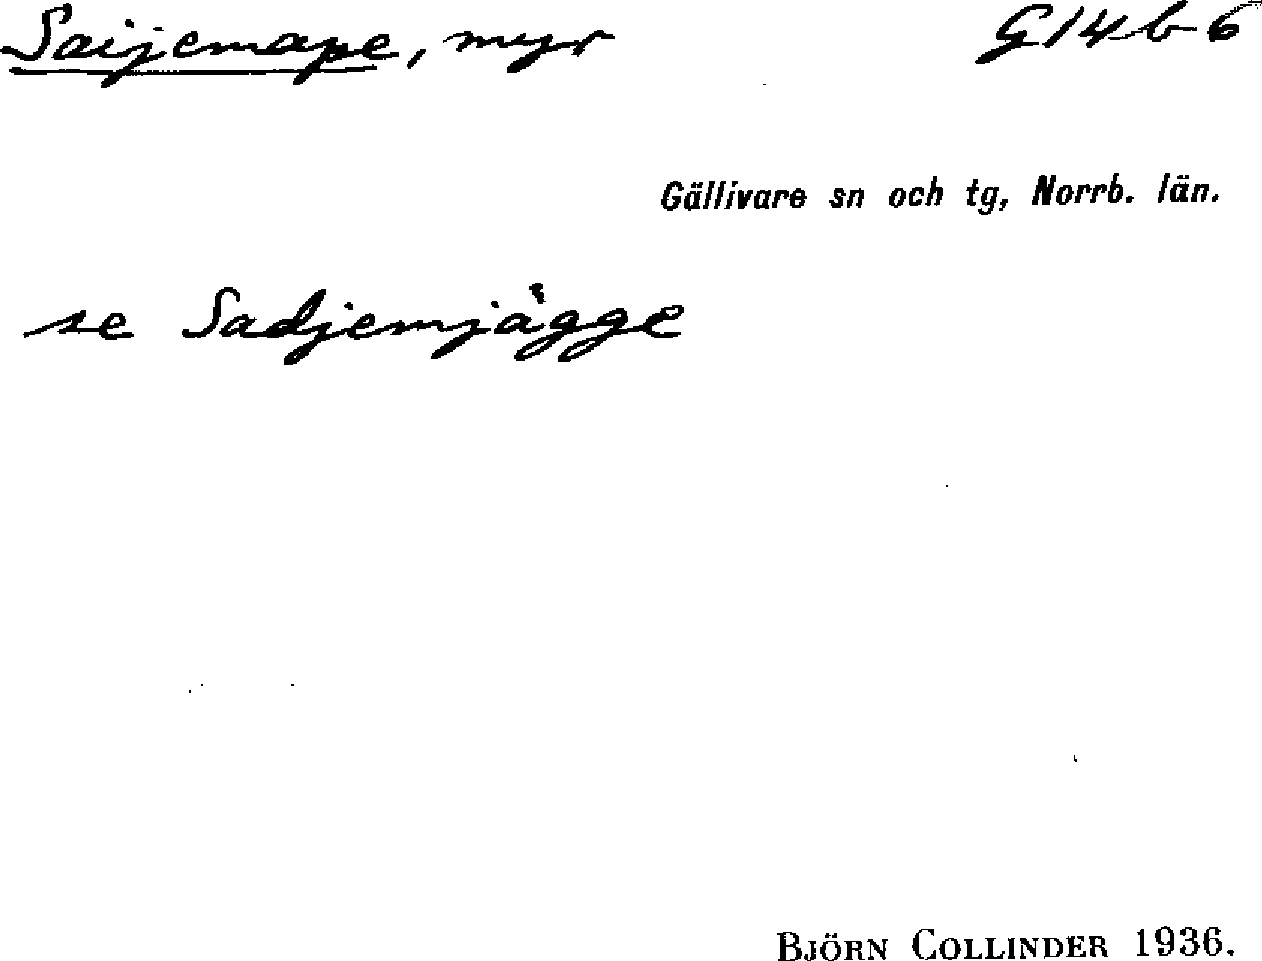 Saijemape, myr G14b6
Gällivare sn och tg, Norrb. län.
se Sadjemjägge
BJÖRN COLLINDER 1936.